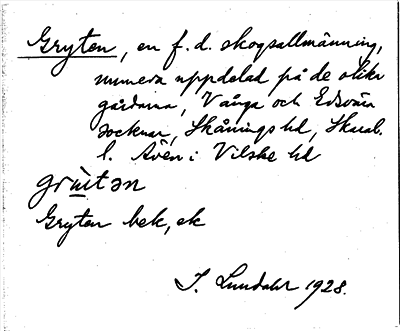 Gryten, en f.d. skogsallmänning,
numera uppdelad på de olika
gårdarna, Vånga och Edsvära
socknar, Skånings hd, Skarab.
l. Även i Vilske hd
grùtən
Gryten bek, ek
J. Lundahl 1928.